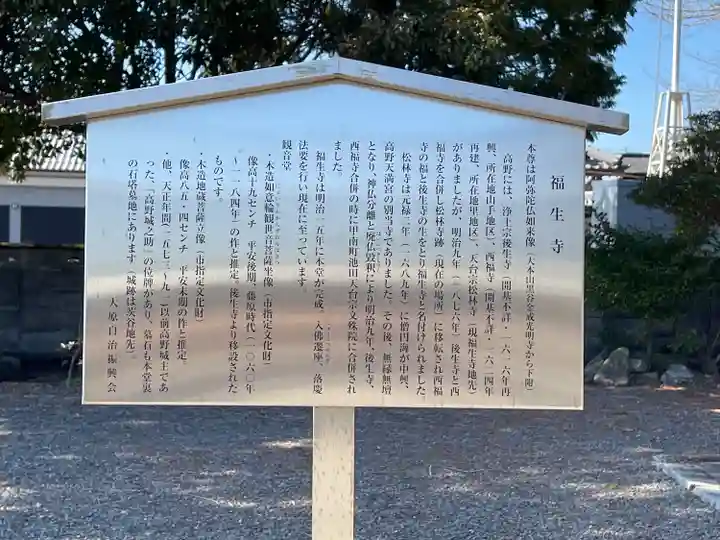 福生寺
本尊は阿弥陀仏如来像(大本山黒谷金戒光明寺から下附)
高野には、浄土宗後生寺(開基不詳・一六一六年再
興、所在地山手地区)、西福寺(開基不詳・一六二四年
再建、所在地里地区)、天台宗松林寺(現福生寺地先)
がありましたが、明治九年(一八七六年)後生寺と西
福寺を合併し松林寺跡(現在の場所)に移転され西福
寺の福と後生寺の生をとり福生寺と名付けられました。
松林寺は元禄二年(一六八九年)に僧円海が中興、
高野天満宮の別当寺でありました。その後、無縁無壇
となり、神仏分離と廃仏毀釈により明治九年、後生寺、
西福寺合併の時に甲南町池田天台宗文殊院に合併され
ました。
福生寺は明治二五年に本堂が完成。入佛遷座、落慶
法要を行い現在に至っています。
観音堂
・木造如意輪観世音菩薩半像(市指定文化財)
像高十九センチ 平安後期、藤原時代(一〇六〇年
~一一八四年)の作と推定。後生寺より移設された
ものです。
・木造地蔵菩薩立像(市指定文化財)
像高八五・四センチ 平安末期の作と推定。
・他、天正年間(一五七三~九一)以前高野城主であ
った、「高野城之助」の位牌があり、墓石も本堂裏
の石塔墓地にあります(城跡は茨谷地先)。
大原自治振興会